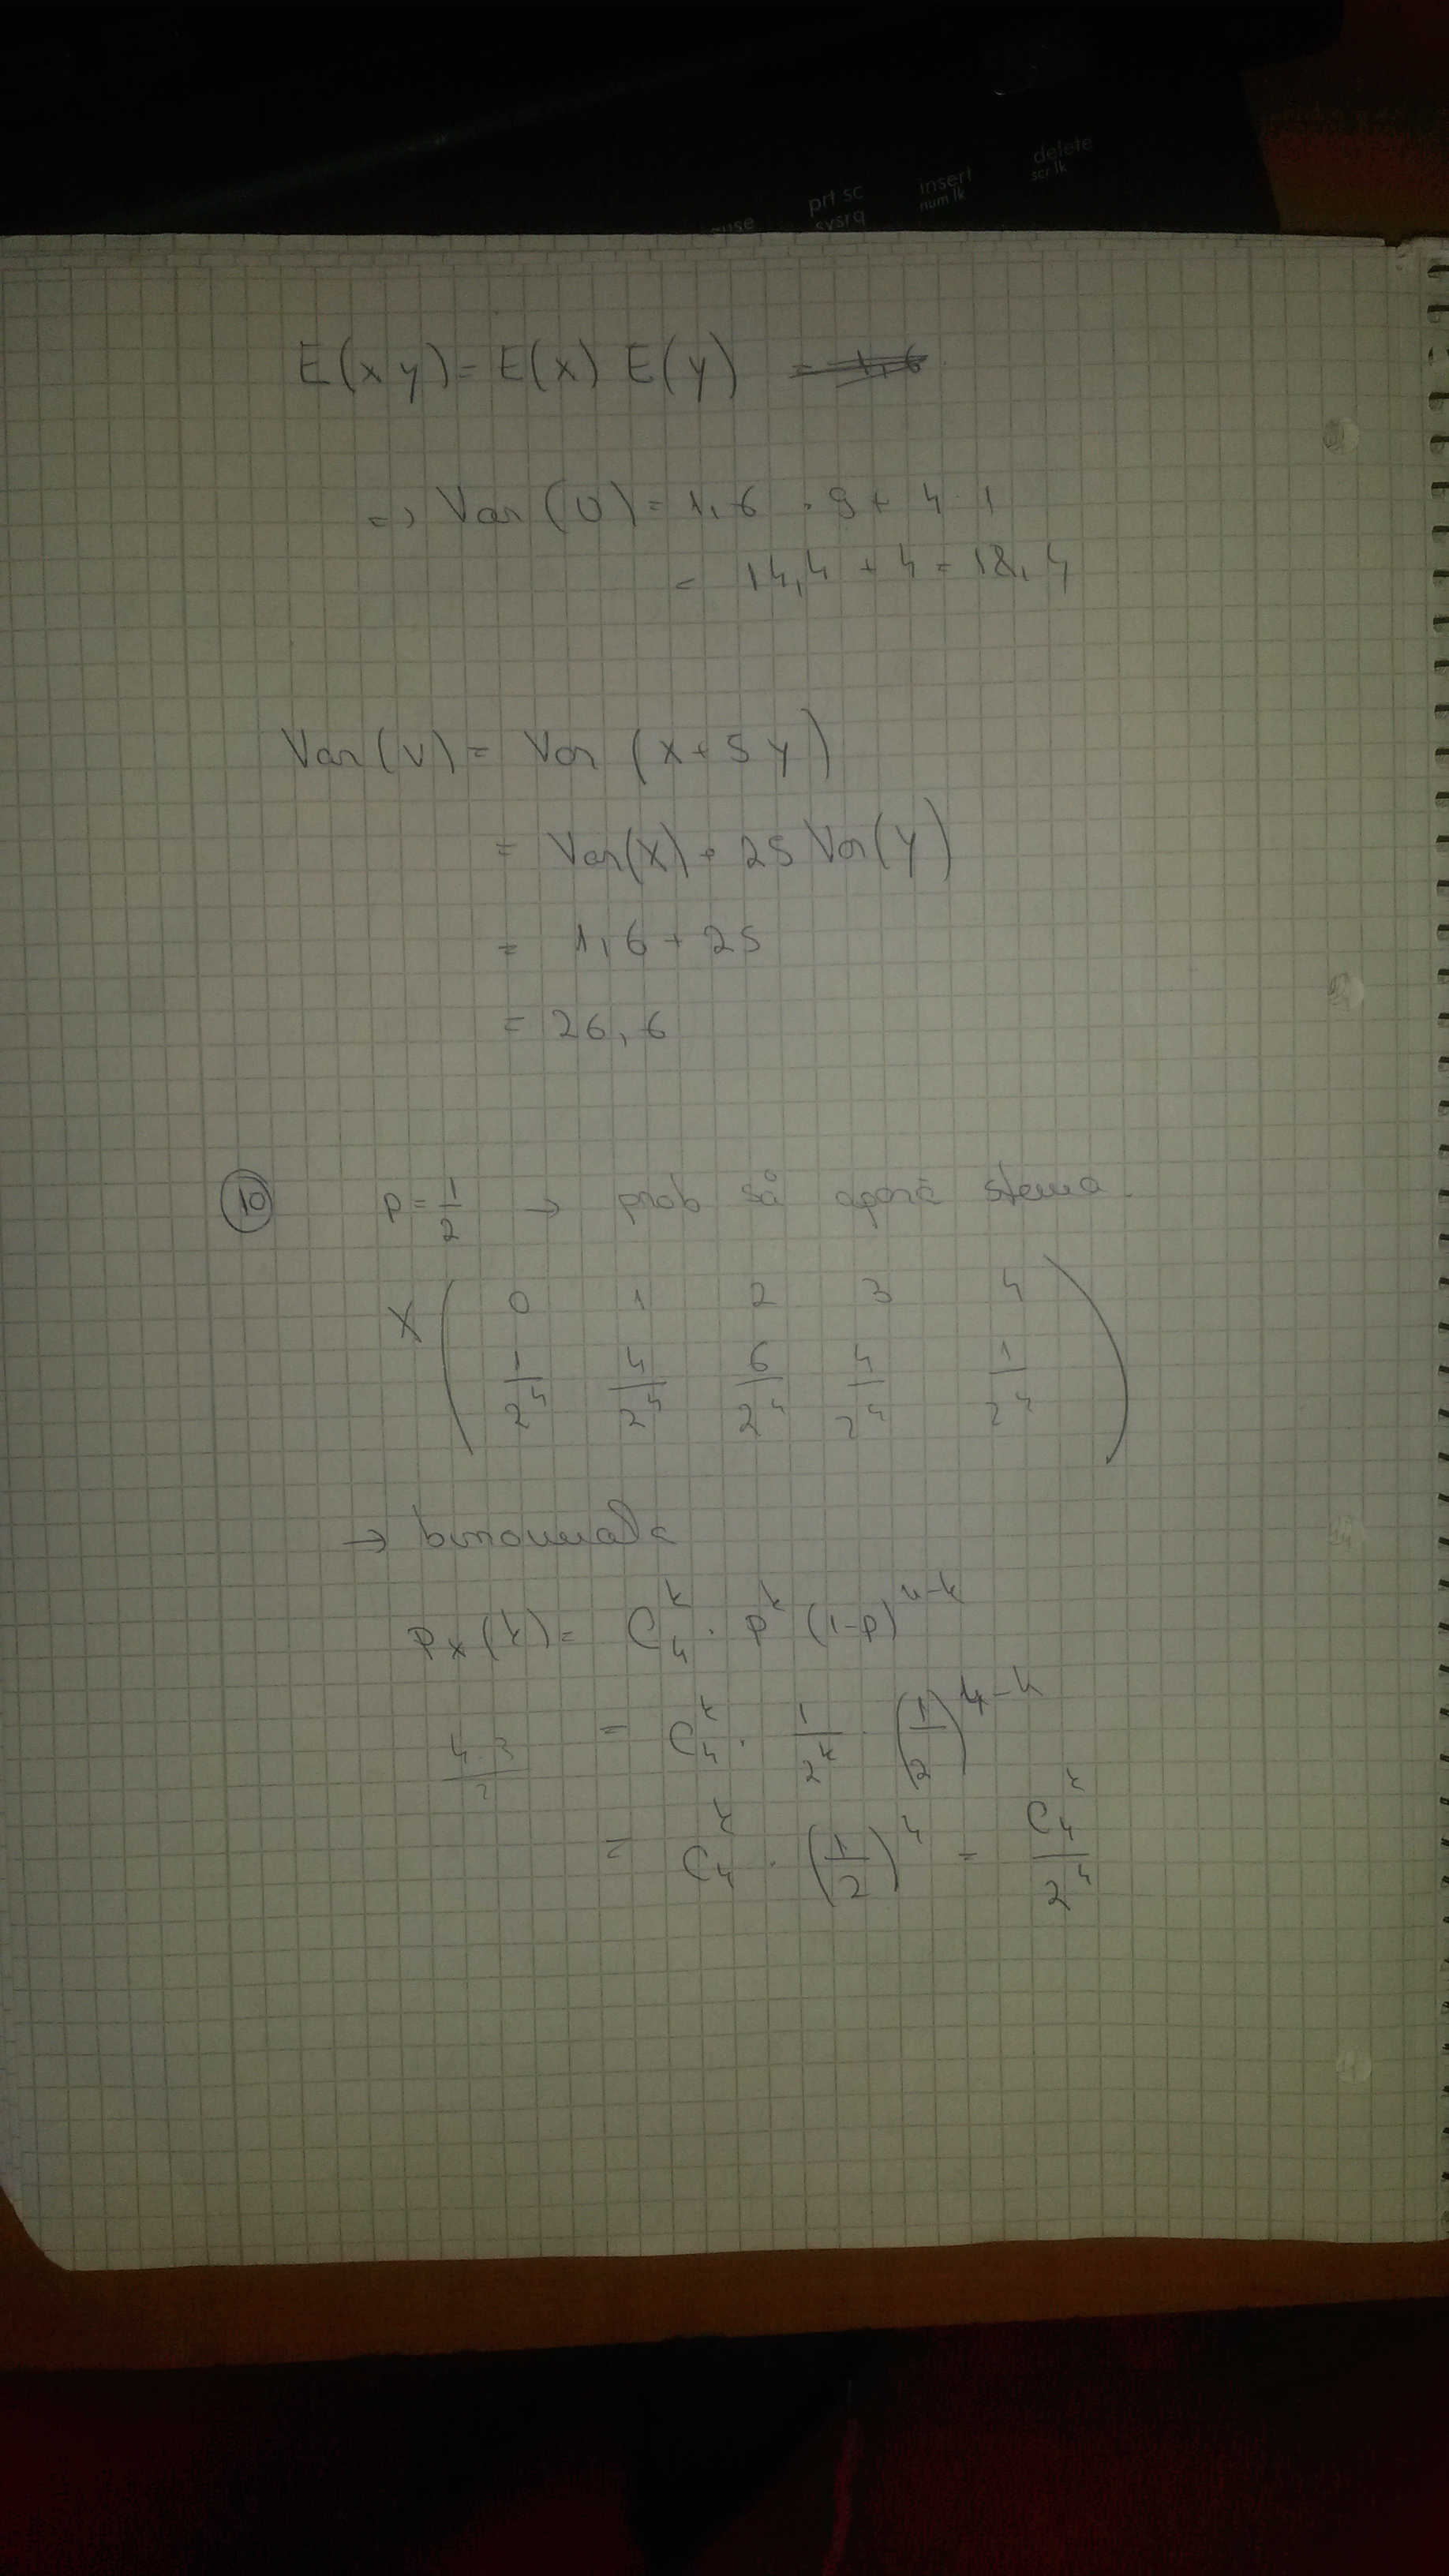 delete
scr lk
insert
num lk
prt sc
sysrq
E(xy) = E(x) E(y) = 1,6
=> Var(U) = 1,6 · 9 + 4 · 1
= 14,4 + 4 = 18,4
Var(V) = Var(X + 5Y)
= Var(X) + 25 Var(Y)
= 1,6 + 25
= 26,6
10 p = 1/2 → prob să apară stema.
X ( 0 1 2 3 4
1/2^4 4/2^4 6/2^4 4/2^4 1/2^4 )
→ binomială
P_X(k) = C_4^k · p^k (1-p)^{n-k}
= C_4^k · 1/2^k · (1/2)^{4-k}
4·3/2
= C_4^k · (1/2)^4 = C_4^k/2^4